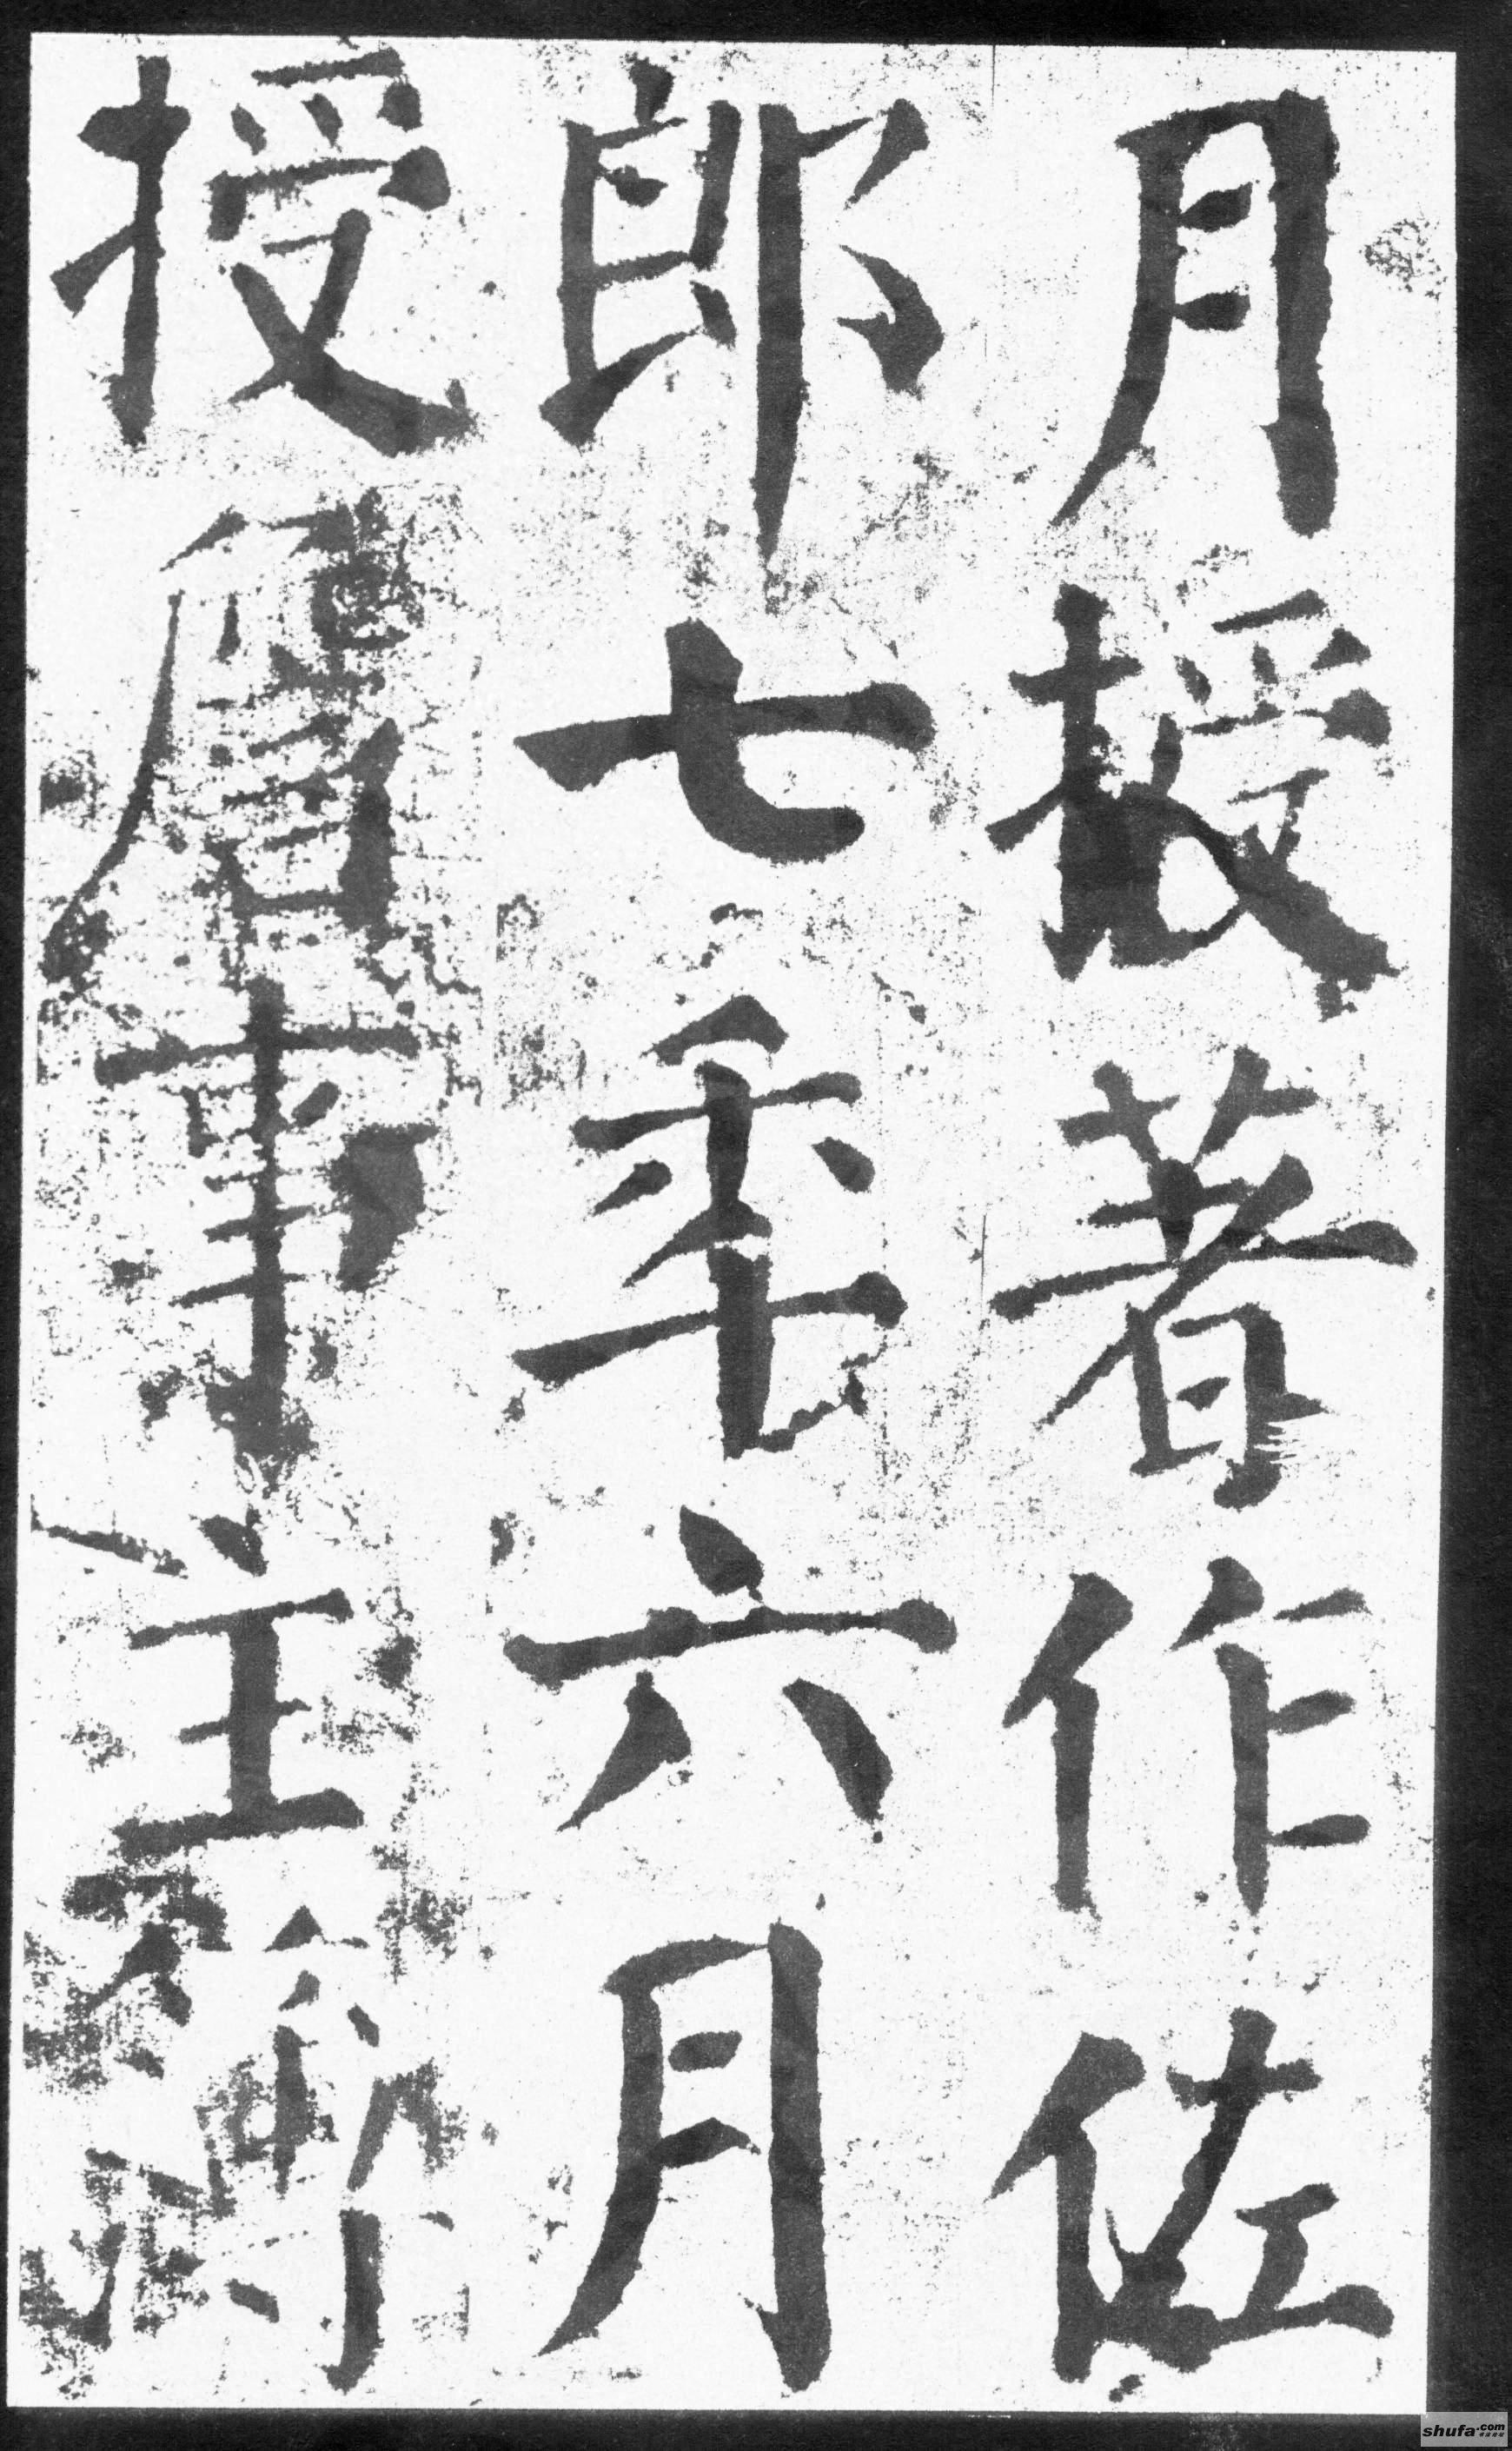 月授著作佐
郎七秊六月
授詹事主簿
shufa.com